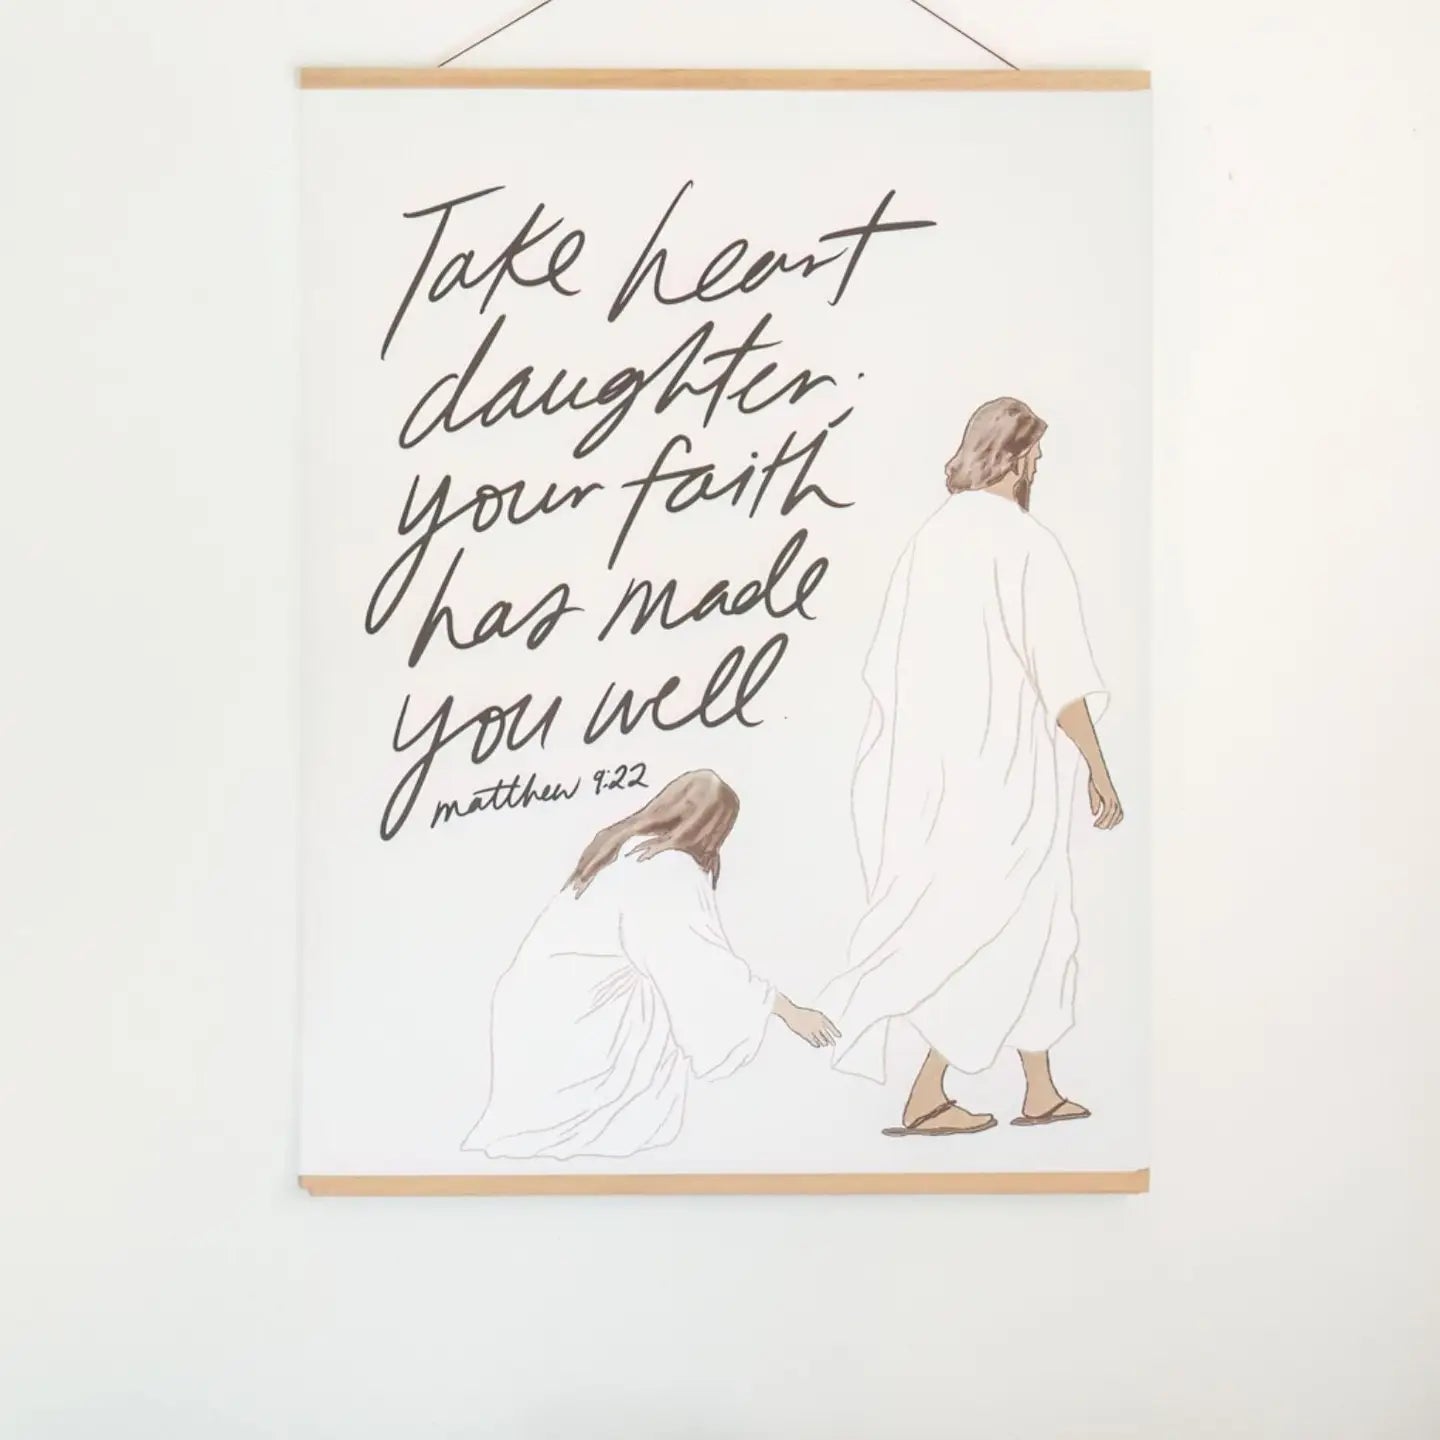 Take heart
daughter;
your faith
has made
you well.
matthew 9:22